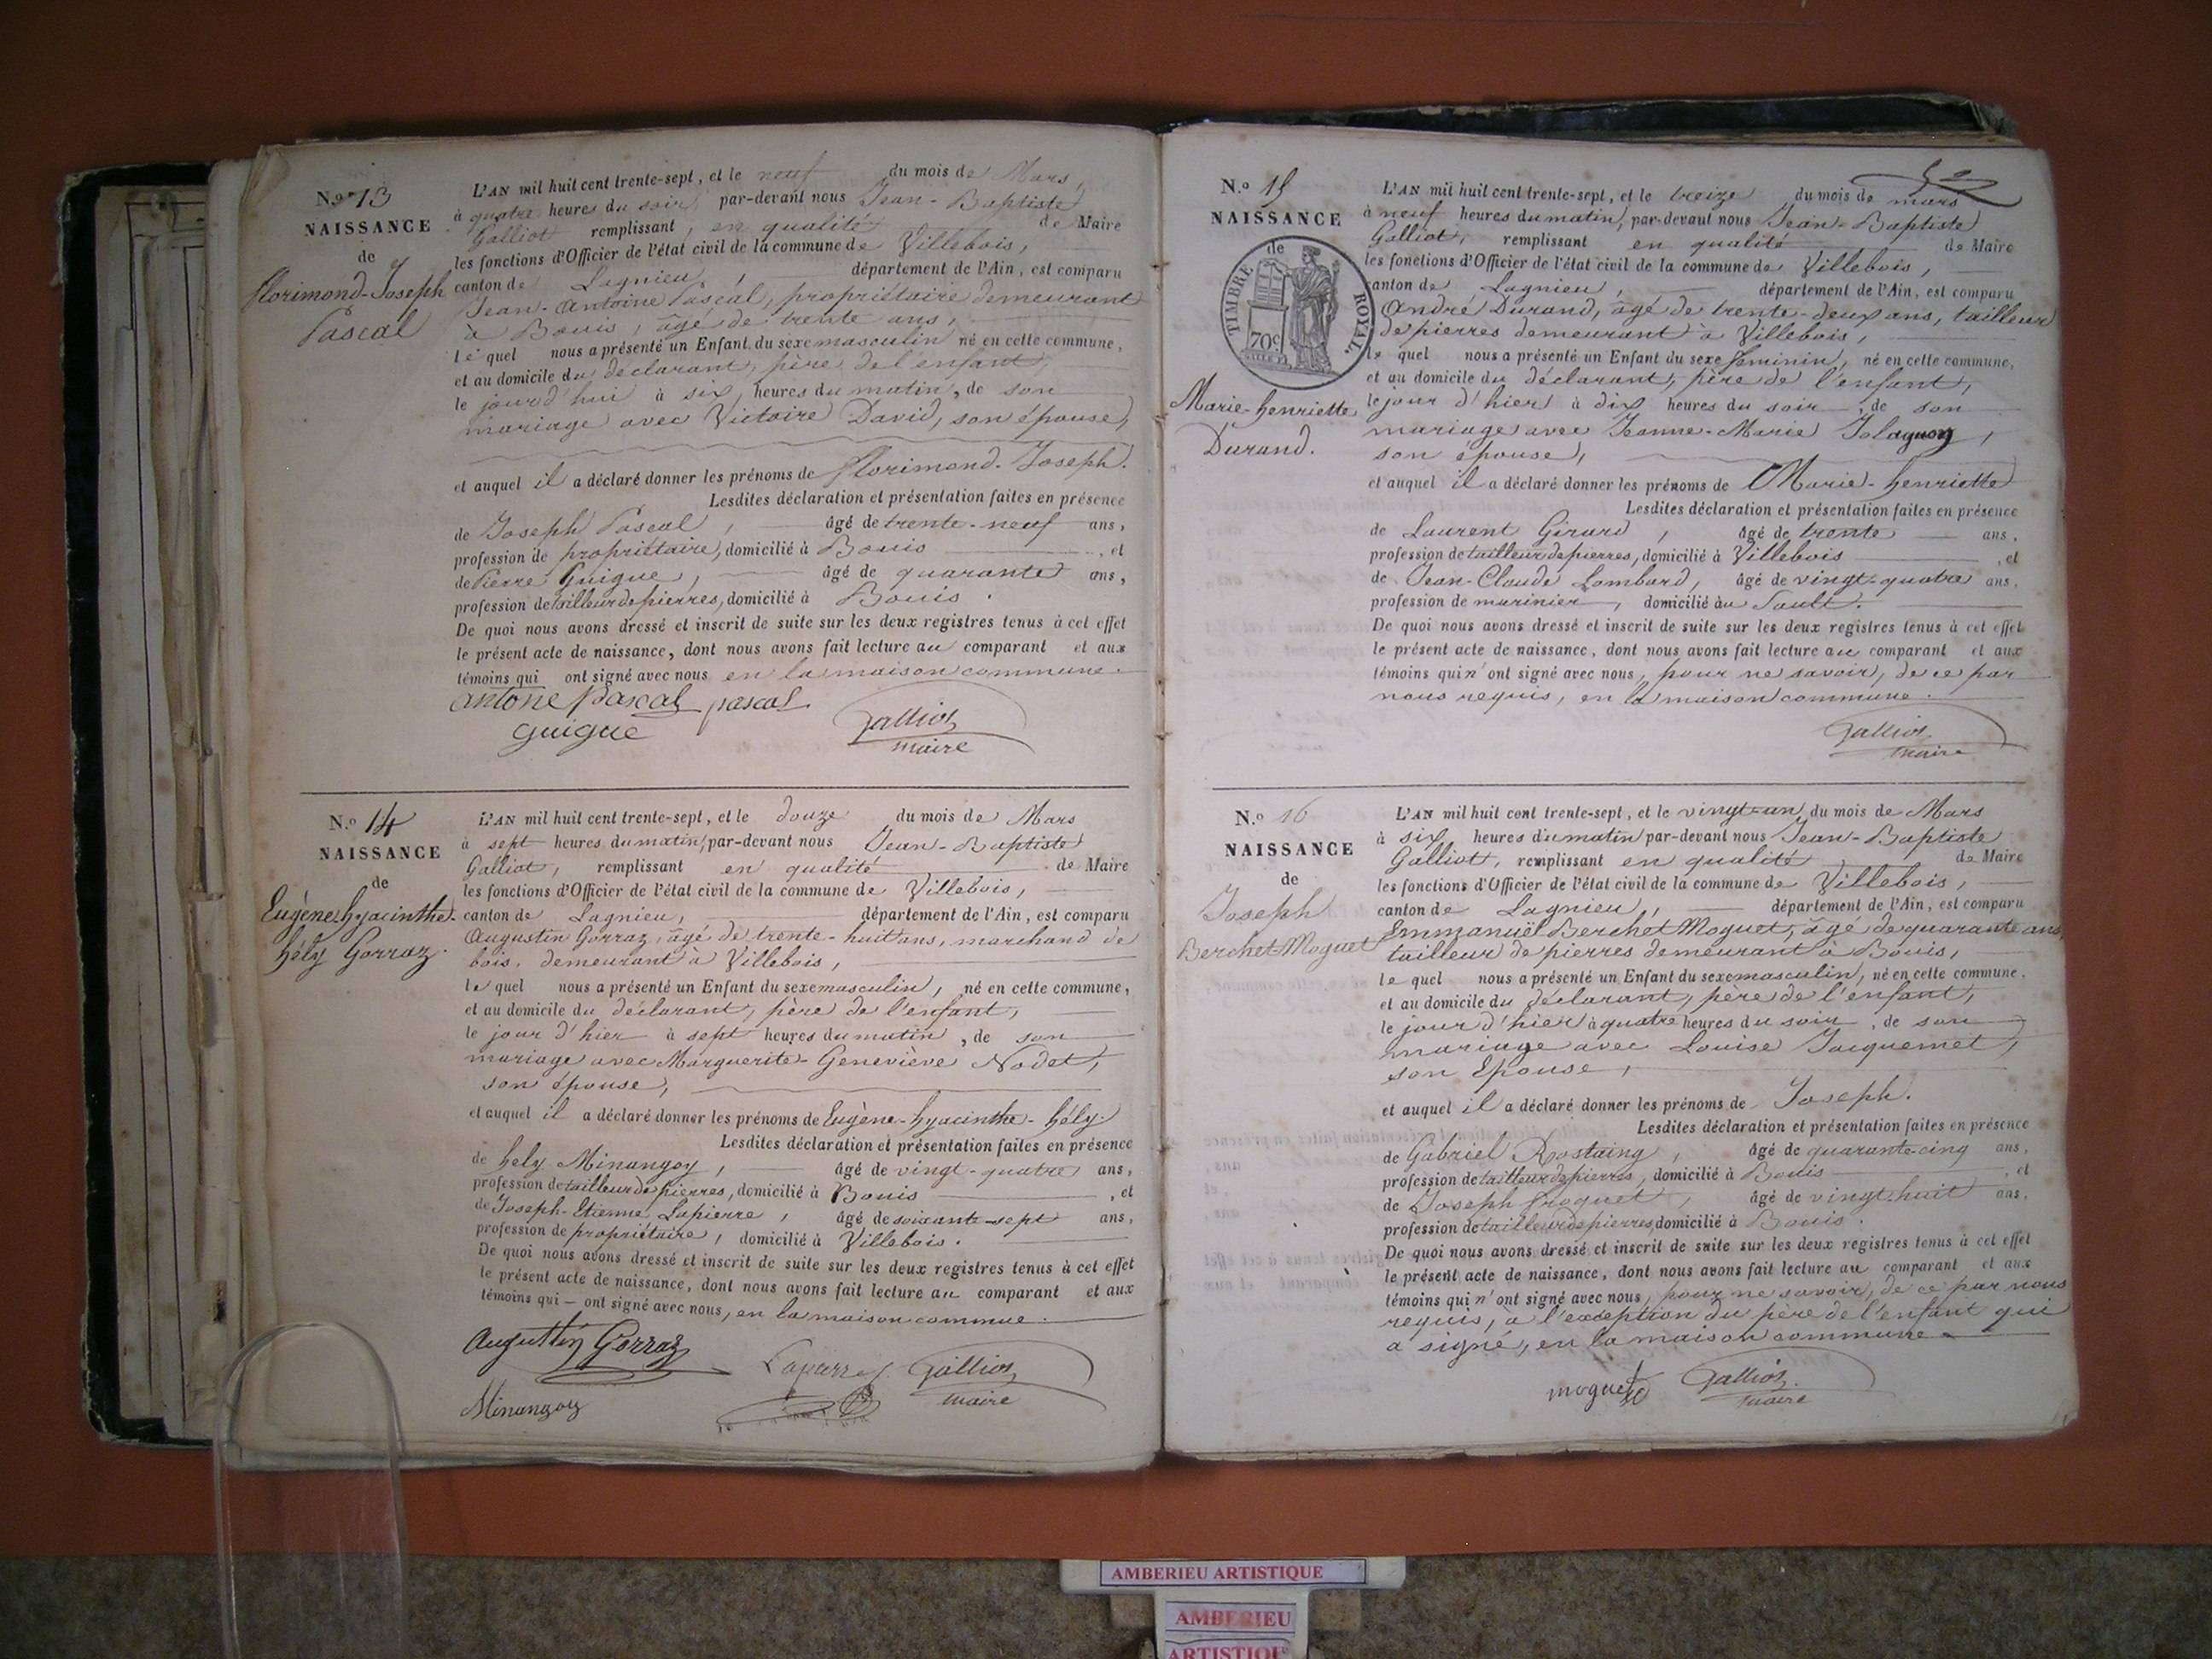 N.º 13
NAISSANCE
de
florimond-Joseph
Pascal
L'AN mil huit cent trente-sept, et le neuf du mois de Mars,
à quatre heures du soir par-devant nous Jean-Baptiste
Galliot remplissant, en qualité de Maire
les fonctions d'Officier de l'état civil de la commune de Villebois,
canton de Lagnieu, département de l'Ain, est comparu
Jean-Antoine Pascal, propriétaire demeurant
à Bouis, âgé de trente ans,
le quel nous a présenté un Enfant du sexe masculin né en cette commune,
et au domicile du déclarant, père de l'enfant,
le jour d'hui à six heures du matin, de son
mariage avec Victoire David, son épouse,
et auquel il a déclaré donner les prénoms de florimond-Joseph.
Lesdites déclaration et présentation faites en présence
de Joseph Pascal, âgé de trente-neuf ans,
profession de propriétaire, domicilié à Bouis, et
de Pierre Guigue, âgé de quarante ans,
profession de tailleur de pierres, domicilié à Bouis.
De quoi nous avons dressé et inscrit de suite sur les deux registres tenus à cet effet
le présent acte de naissance, dont nous avons fait lecture au comparant et aux
témoins qui ont signé avec nous en la maison commune.
antone pascal pascal
guigue Galliot
maire
N.º 14
NAISSANCE
de
Eugène-hyacinthe-
hély Gorraz.
L'AN mil huit cent trente-sept, et le douze du mois de Mars
à sept heures du matin, par-devant nous Jean-Baptiste
Galliot, remplissant en qualité de Maire
les fonctions d'Officier de l'état civil de la commune de Villebois,
canton de Lagnieu, département de l'Ain, est comparu
Augustin Gorraz, âgé de trente-huit ans, marchand de
bois, demeurant à Villebois,
le quel nous a présenté un Enfant du sexe masculin, né en cette commune,
et au domicile du déclarant, père de l'enfant,
le jour d'hier à sept heures du matin, de son
mariage avec Marguerite-Geneviève Nodet,
son épouse,
et auquel il a déclaré donner les prénoms de Eugène-hyacinthe-hély.
Lesdites déclaration et présentation faites en présence
de hely Minangoy, âgé de vingt-quatre ans,
profession de tailleur de pierres, domicilié à Bouis, et
de Joseph-Etienne Lapierre, âgé de soixante-sept ans,
profession de propriétaire, domicilié à Villebois.
De quoi nous avons dressé et inscrit de suite sur les deux registres tenus à cet effet
le présent acte de naissance, dont nous avons fait lecture au comparant et aux
témoins qui – ont signé avec nous, en la maison commue.
Augustin Gorraz Galliot
Minangoy maire
N.º 15
NAISSANCE
de
TIMBRE ROYAL.
70c
Marie-henriette
Durand.
L'AN mil huit cent trente-sept, et le treize du mois de mars
à neuf heures du matin, par-devant nous Jean-Baptiste
Galliot, remplissant en qualité de Maire
les fonctions d'Officier de l'état civil de la commune de Villebois,
canton de Lagnieu, département de l'Ain, est comparu
André Durand, âgé de trente-deux ans, tailleur
de pierres demeurant à Villebois,
le quel nous a présenté un Enfant du sexe féminin, né en cette commune,
et au domicile du déclarant, père de l'enfant,
le jour d'hier à dix heures du soir, de son
mariage avec Jeanne-Marie
son épouse,
et auquel il a déclaré donner les prénoms de Marie-henriette
Lesdites déclaration et présentation faites en présence
de Laurent Girard, âgé de trente ans,
profession de tailleur de pierres, domicilié à Villebois, et
de Jean-Claude Lombard, âgé de vingt-quatre ans,
profession de marinier, domicilié au Sault.
De quoi nous avons dressé et inscrit de suite sur les deux registres tenus à cet effet
le présent acte de naissance, dont nous avons fait lecture au comparant et aux
témoins qui n'ont signé avec nous, pour ne savoir, de ce par
nous requis, en la maison commune.
Galliot
maire
N.º 16
NAISSANCE
de
Joseph
Berchet Moguet
L'AN mil huit cent trente-sept, et le vingt-un du mois de Mars
à six heures du matin par-devant nous Jean-Baptiste
Galliot, remplissant en qualité de Maire
les fonctions d'Officier de l'état civil de la commune de Villebois,
canton de Lagnieu, département de l'Ain, est comparu
Emmanuël Berchet Moguet, âgé de quarante ans,
tailleur de pierres demeurant à Bouis,
le quel nous a présenté un Enfant du sexe masculin, né en cette commune,
et au domicile du déclarant, père de l'enfant,
le jour d'hier à quatre heures du soir, de son
mariage avec Louise Jacquemet,
son Epouse,
et auquel il a déclaré donner les prénoms de Joseph.
Lesdites déclaration et présentation faites en présence
de Gabriel Rostaing, âgé de quarante-cinq ans,
profession de tailleur de pierres, domicilié à Bouis, et
de Joseph âgé de vingt-huit ans,
profession de tailleur de pierres, domicilié à Bouis.
De quoi nous avons dressé et inscrit de suite sur les deux registres tenus à cet effet
le présent acte de naissance, dont nous avons fait lecture au comparant et aux
témoins qui n'ont signé avec nous, pour ne savoir, de ce par nous
requis, à l'exception du père de l'enfant qui
a signé, en la maison commune.
moguet Galliot
maire
AMBERIEU ARTISTIQUE
AMBERIEU
ARTISTIQUE